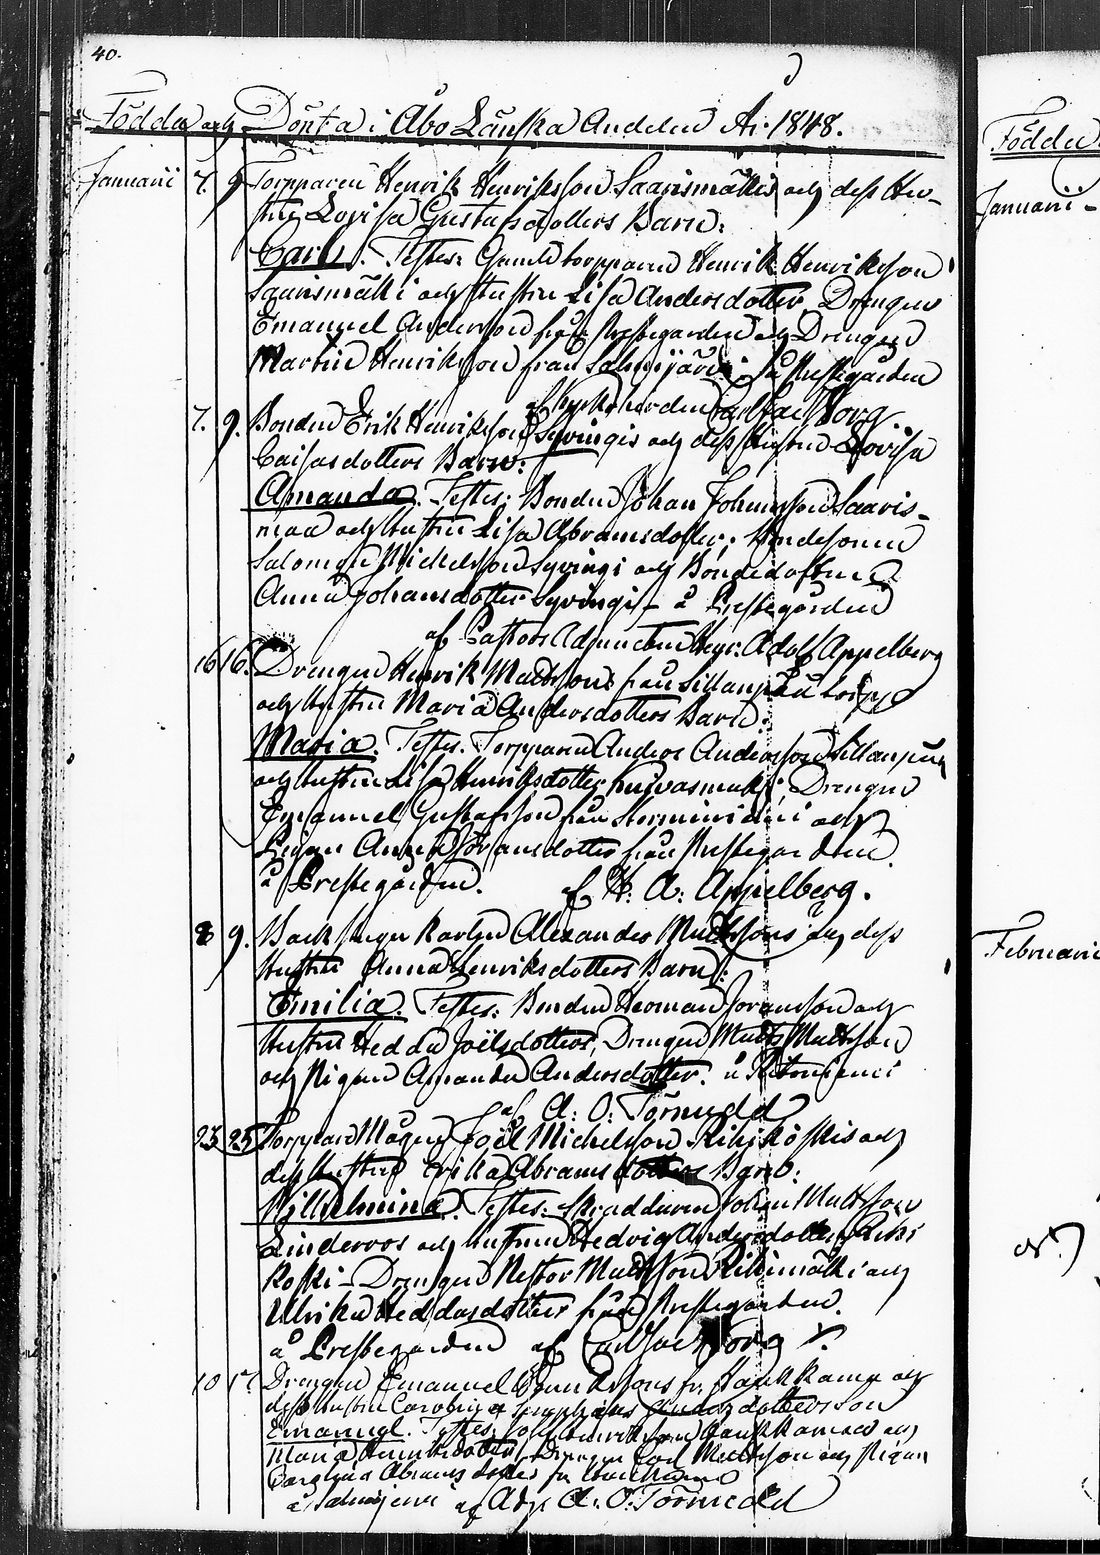 40.
Födde och Döpta i Åbo Länska Andelen År 1848.
Januarii 7. 9 Torpparen Henrik Henriksson Saarismäkis och dess Hu-
stru Lovisa Gustafsdotters Barn:
Carl. Testes: Gamle torpparen Henrik Henriksson
Saarismäki och Hustru Lisa Andersdotter, Drengen
Emanuel Andersson från Prestegården och Drengen
Martin Henriksson från Salmijärvi. på Prestgården
af Kyrkoherden Carl Isac Borg
7. 9. Bonden Erik Henriksson Syvingis och dess Hustru Lovisa
Caisasdotters Barn:
Amanda. Testes: Bonden Johan Johansson Saaris-
maa och Hustru Lisa Abramsdotter; Bondesonen
Salomon Michelsson Syvingi och Bondedottren
Anna Johansdotter Syvingi - å Prestegården
af Pastors Adjuncten Adolf Appelberg
16 16. Drengen Henrik Mattssons från Sillanpää
och Hustru Maria Andersdotters Barn:
Maria. Testes. Torpparen Anders Andersson Sillanpää
och Hustru Lisa Henriksdotter Drengen
Emanuel Gustafsson från och
Pigan Anna Göransdotter från Prestegården.
å Prestegården. af H. A: Appelberg.
8 9. Backstugu Karlen Alexander Mattssons och dess
Hustru Anna Henriksdotters Barn:
Emilia. Testes: Bonden Herman Joransson och
Hustru Hedda Joëlsdotter, Drengen Matts Mattsson
och Pigan Amanda Andersdotter. å
af A: O: Törnudd
25 25 Torppare Mågen Joël Michelsson Riihikoskis och
dess Hustru Erika Abramsdotters Barn:
Wilhelmina. Testes: Skräddaren Johan Mattsson
Linderoos och Hustrun Hedvig Andersdotter Riihi
koski - Drengen Nestor Mattsson Riihimäki och
Ulrika Heddasdotter från Prestegården.
å Prestegården af Carl Isac Borg
10 17. Drengen Emanuel Henrikssons fr. Haukkamaa och
dess Hustru Carolina Andersdotters son
Emanuel. Testes: Haukkamaa och
Maria Henriksdotter, Drengen Carl Mattsson och Pigan
Carolina Abramsdotter fr.
å Salmijärvi af Adj. A: O: Törnudd
Födde
Januarii -
Februarii